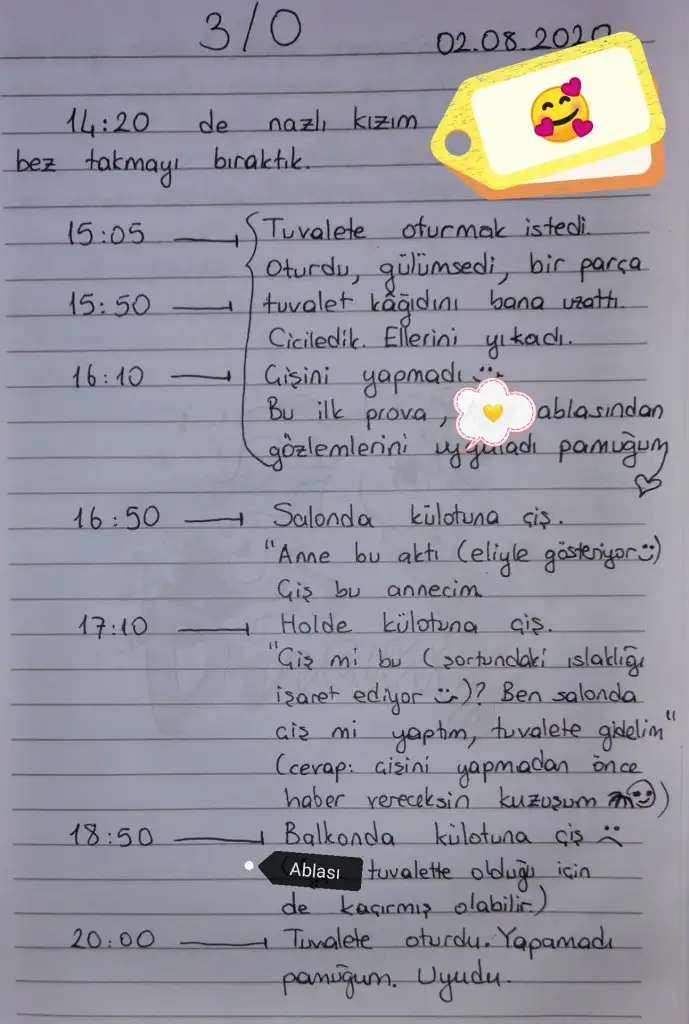 3/0
02.08.2020
14:20 de nazlı kızım
bez takmayı bıraktık.
15:05 Tuvalete oturmak istedi.
Oturdu, gülümsedi, bir parça
15:50 tuvalet kâğıdını bana uzattı.
Ciciledik. Ellerini yıkadı.
16:10 Çişini yapmadı
Bu ilk prova, ablasından
gözlemlerini uyguladı pamuğum
16:50 Salonda külotuna çiş.
"Anne bu aktı (eliyle gösteriyor)
Çiş bu annecim
17:10 Holde külotuna çiş.
"Çiş mi bu (şortundaki ıslaklığı
işaret ediyor)? Ben salonda
çiş mi yaptım, tuvalete gidelim"
(cevap: çişini yapmadan önce
haber vereceksin kuzuşum)
18:50 Balkonda külotuna çiş
Ablası tuvalette olduğu için
de kaçırmış olabilir.)
20:00 Tuvalete oturdu. Yapamadı
pamuğum. Uyudu.